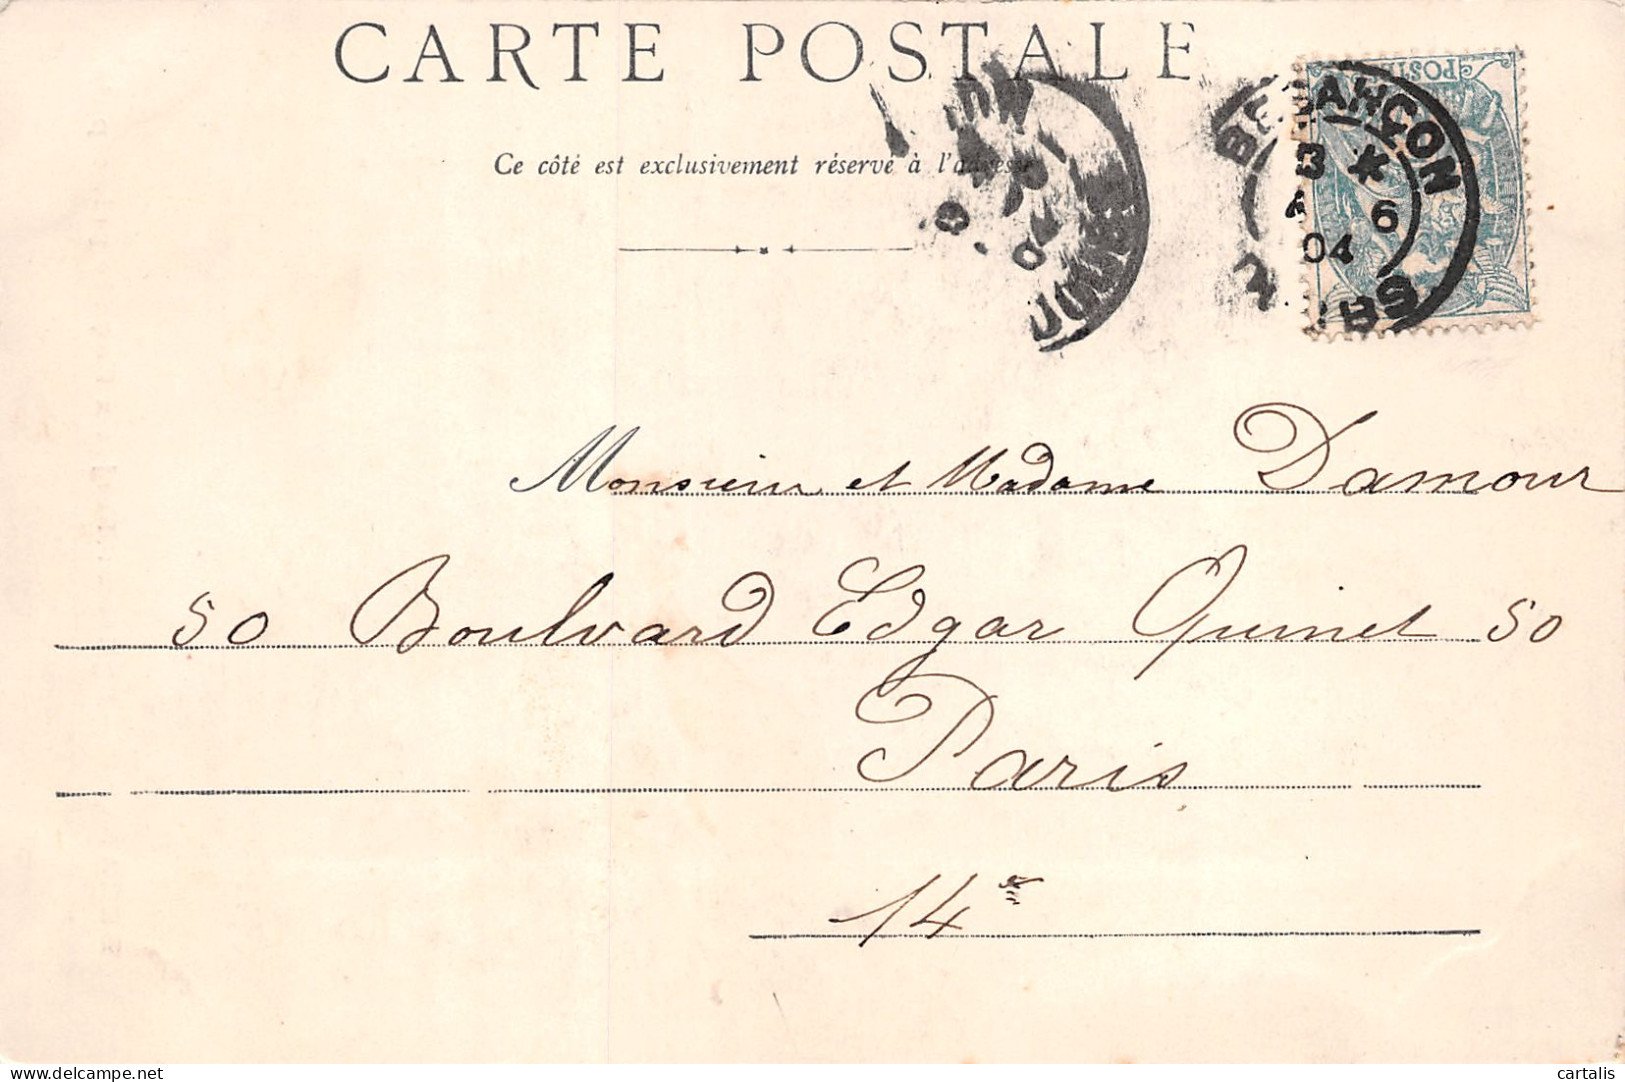 CARTE POSTALE
Ce côté est exclusivement réservé à l'adresse
BESANÇON
3 *
6
04
Monsieur et Madame Damour
50 Boulvard Edgar Quinet 50
Paris
14e
delcampe.net
cartalis